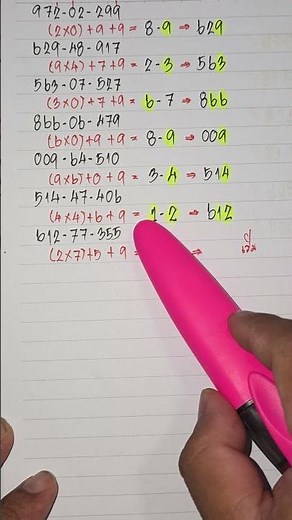 972-02-299
(2x0)+9+9= 8-9 ⇒ 629
629-48-917
(9x4)+7+9= 2-3 ⇒ 563
563-07-527
(3x0)+7+9= 6-7 ⇒ 866
866-06-479
(6x0)+9+9= 8-9 ⇒ 009
009-64-510
(9x6)+0+9= 3-4 ⇒ 514
514-47-406
(4x4)+6+9= 1-2 ⇒ 612
612-77-355
(2x7)+5+9= ⇒